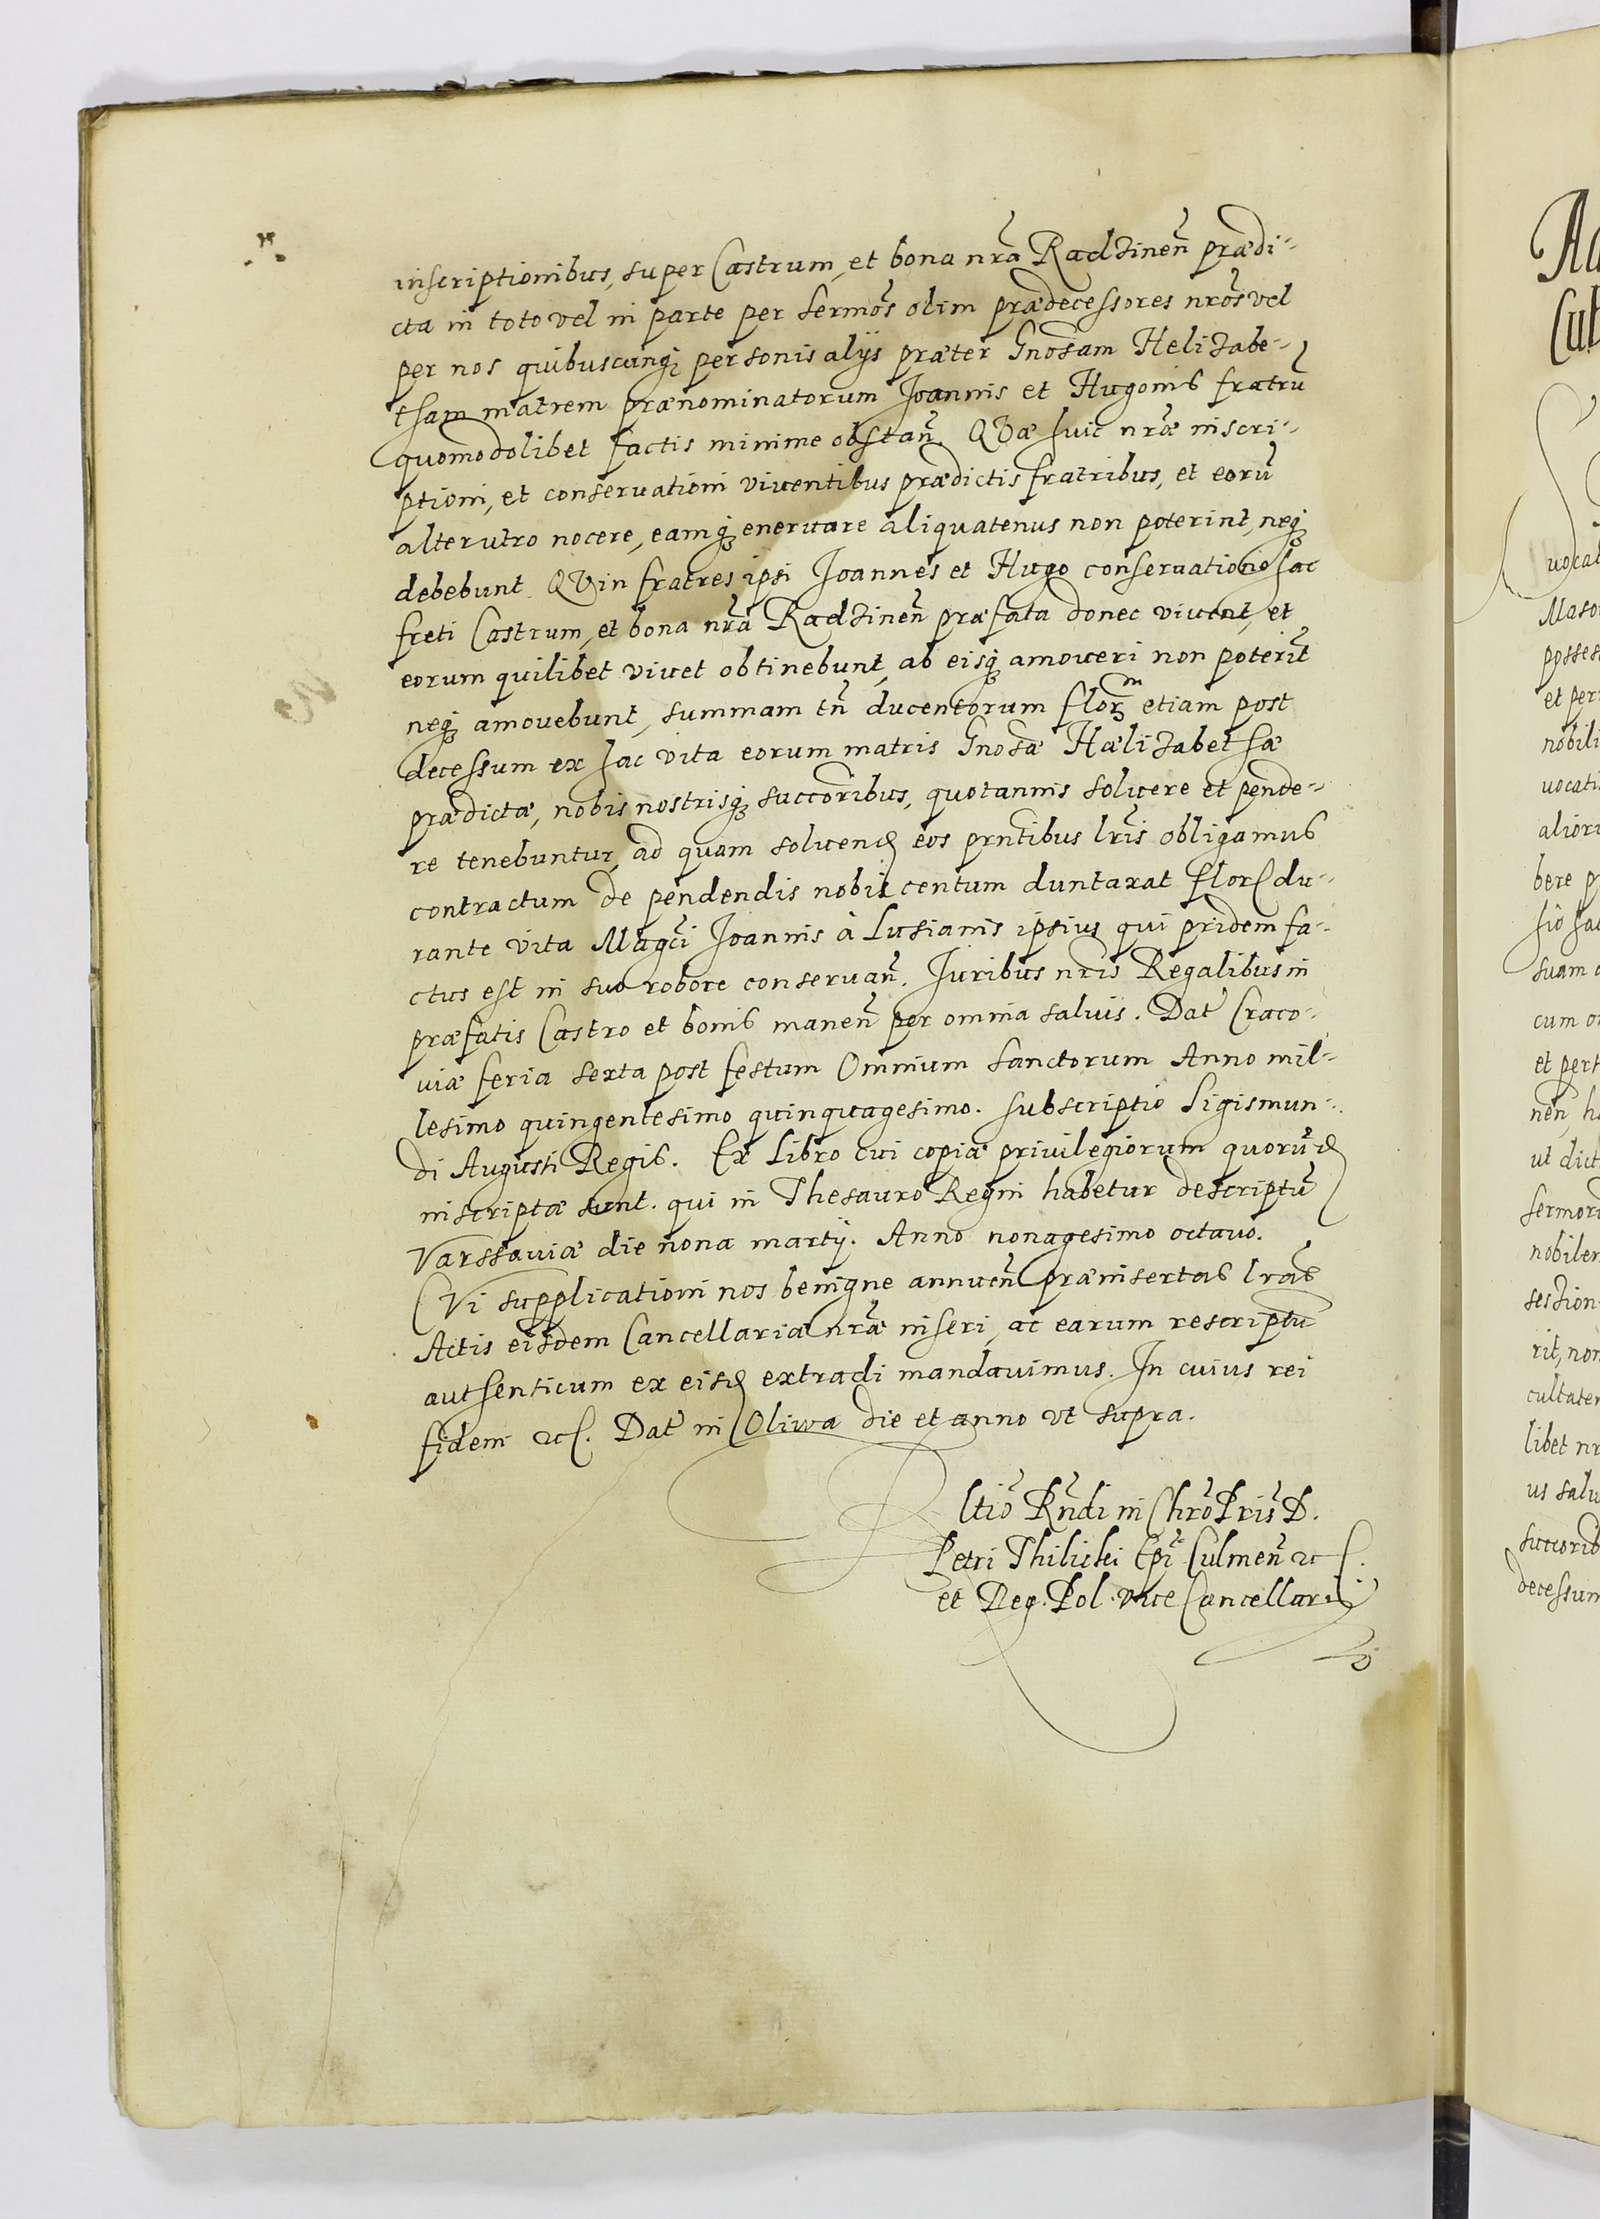 inscriptionibus, super Castrum, et bona nrã Radzinen̄ prædi-
cta in toto vel in parte per Sermõs olim prædecessores nrõs vel
per nos quibuscunq; personis alijs præter Gnosam Helizabe-
tham matrem prænominatorum Joannis et Hugonis fratrū
quomodolibet factis minime obstan̄. QVæ huic nrõæ inscri-
ptioni, et conseruationi viuentibus prædictis fratribus, et eorū
alterutro nocere, eamq; eneruare aliquatenus non poterint, neq;
debebunt. QVin fratres ipsi Joannes et Hugo conseruatione hac
freti Castrum, et bona nrã Radzinen̄ præfata donec viuent, et
eorum quilibet viuet obtinebunt, ab eisq; amoueri non poterīt
neq; amouebunt, summam tn̄ ducentorum florm etiam post
decessum ex hac vita eorum matris Gnosæ Hælizabethæ
prædictæ, nobis nostrisq; succoribus, quotannis soluere et pende-
re tenebuntur, ad quam soluend eos prntibus lrīs obligamus
contractum de pendendis nobis centum duntaxat flor du-
rante vita Magci Joannis à Lusianis ipsius qui pridem fa-
ctus est in suo robore conseruan̄. Juribus nrīs Regalibus in
præfatis Castro et bonis manen̄ per omnia saluis. Dat Craco-
uiæ feria sexta post festum Omnium Sanctorum Anno mil-
lesimo quingentesimo quinquagesimo. Subscriptio Sigismun-
di Augusti Regis. Ex Libro cui copiæ priuilegiorum quorūd
inscriptæ sunt. qui in Thesauro Regni habetur descriptū
Varssauiæ die nona martij. Anno nonagesimo octauo.
CVi supplicationi nos benigne annuen̄ præinsertas lrās
Actis eisdem Cancellariæ nræ inseri, ac earum rescriptū
authenticum ex eisd extradi mandauimus. In cuius rei
fidem etc. Dat in Oliwa die et anno vt supra.
Rltiō Rndi in Chrō Pris D.
Petri Thilicki Epi Culmen̄ etc.
et Reg. Pol. vice Cancellarij